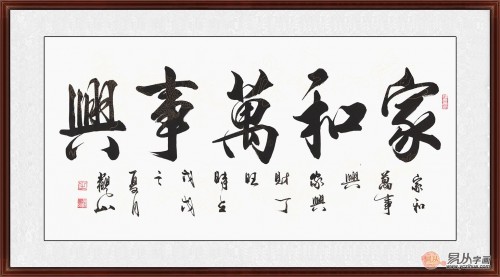 家和萬事興
家和
萬事
興
家興
財丁
旺
時在
戊戌
之
夏月
觀山
易从字画